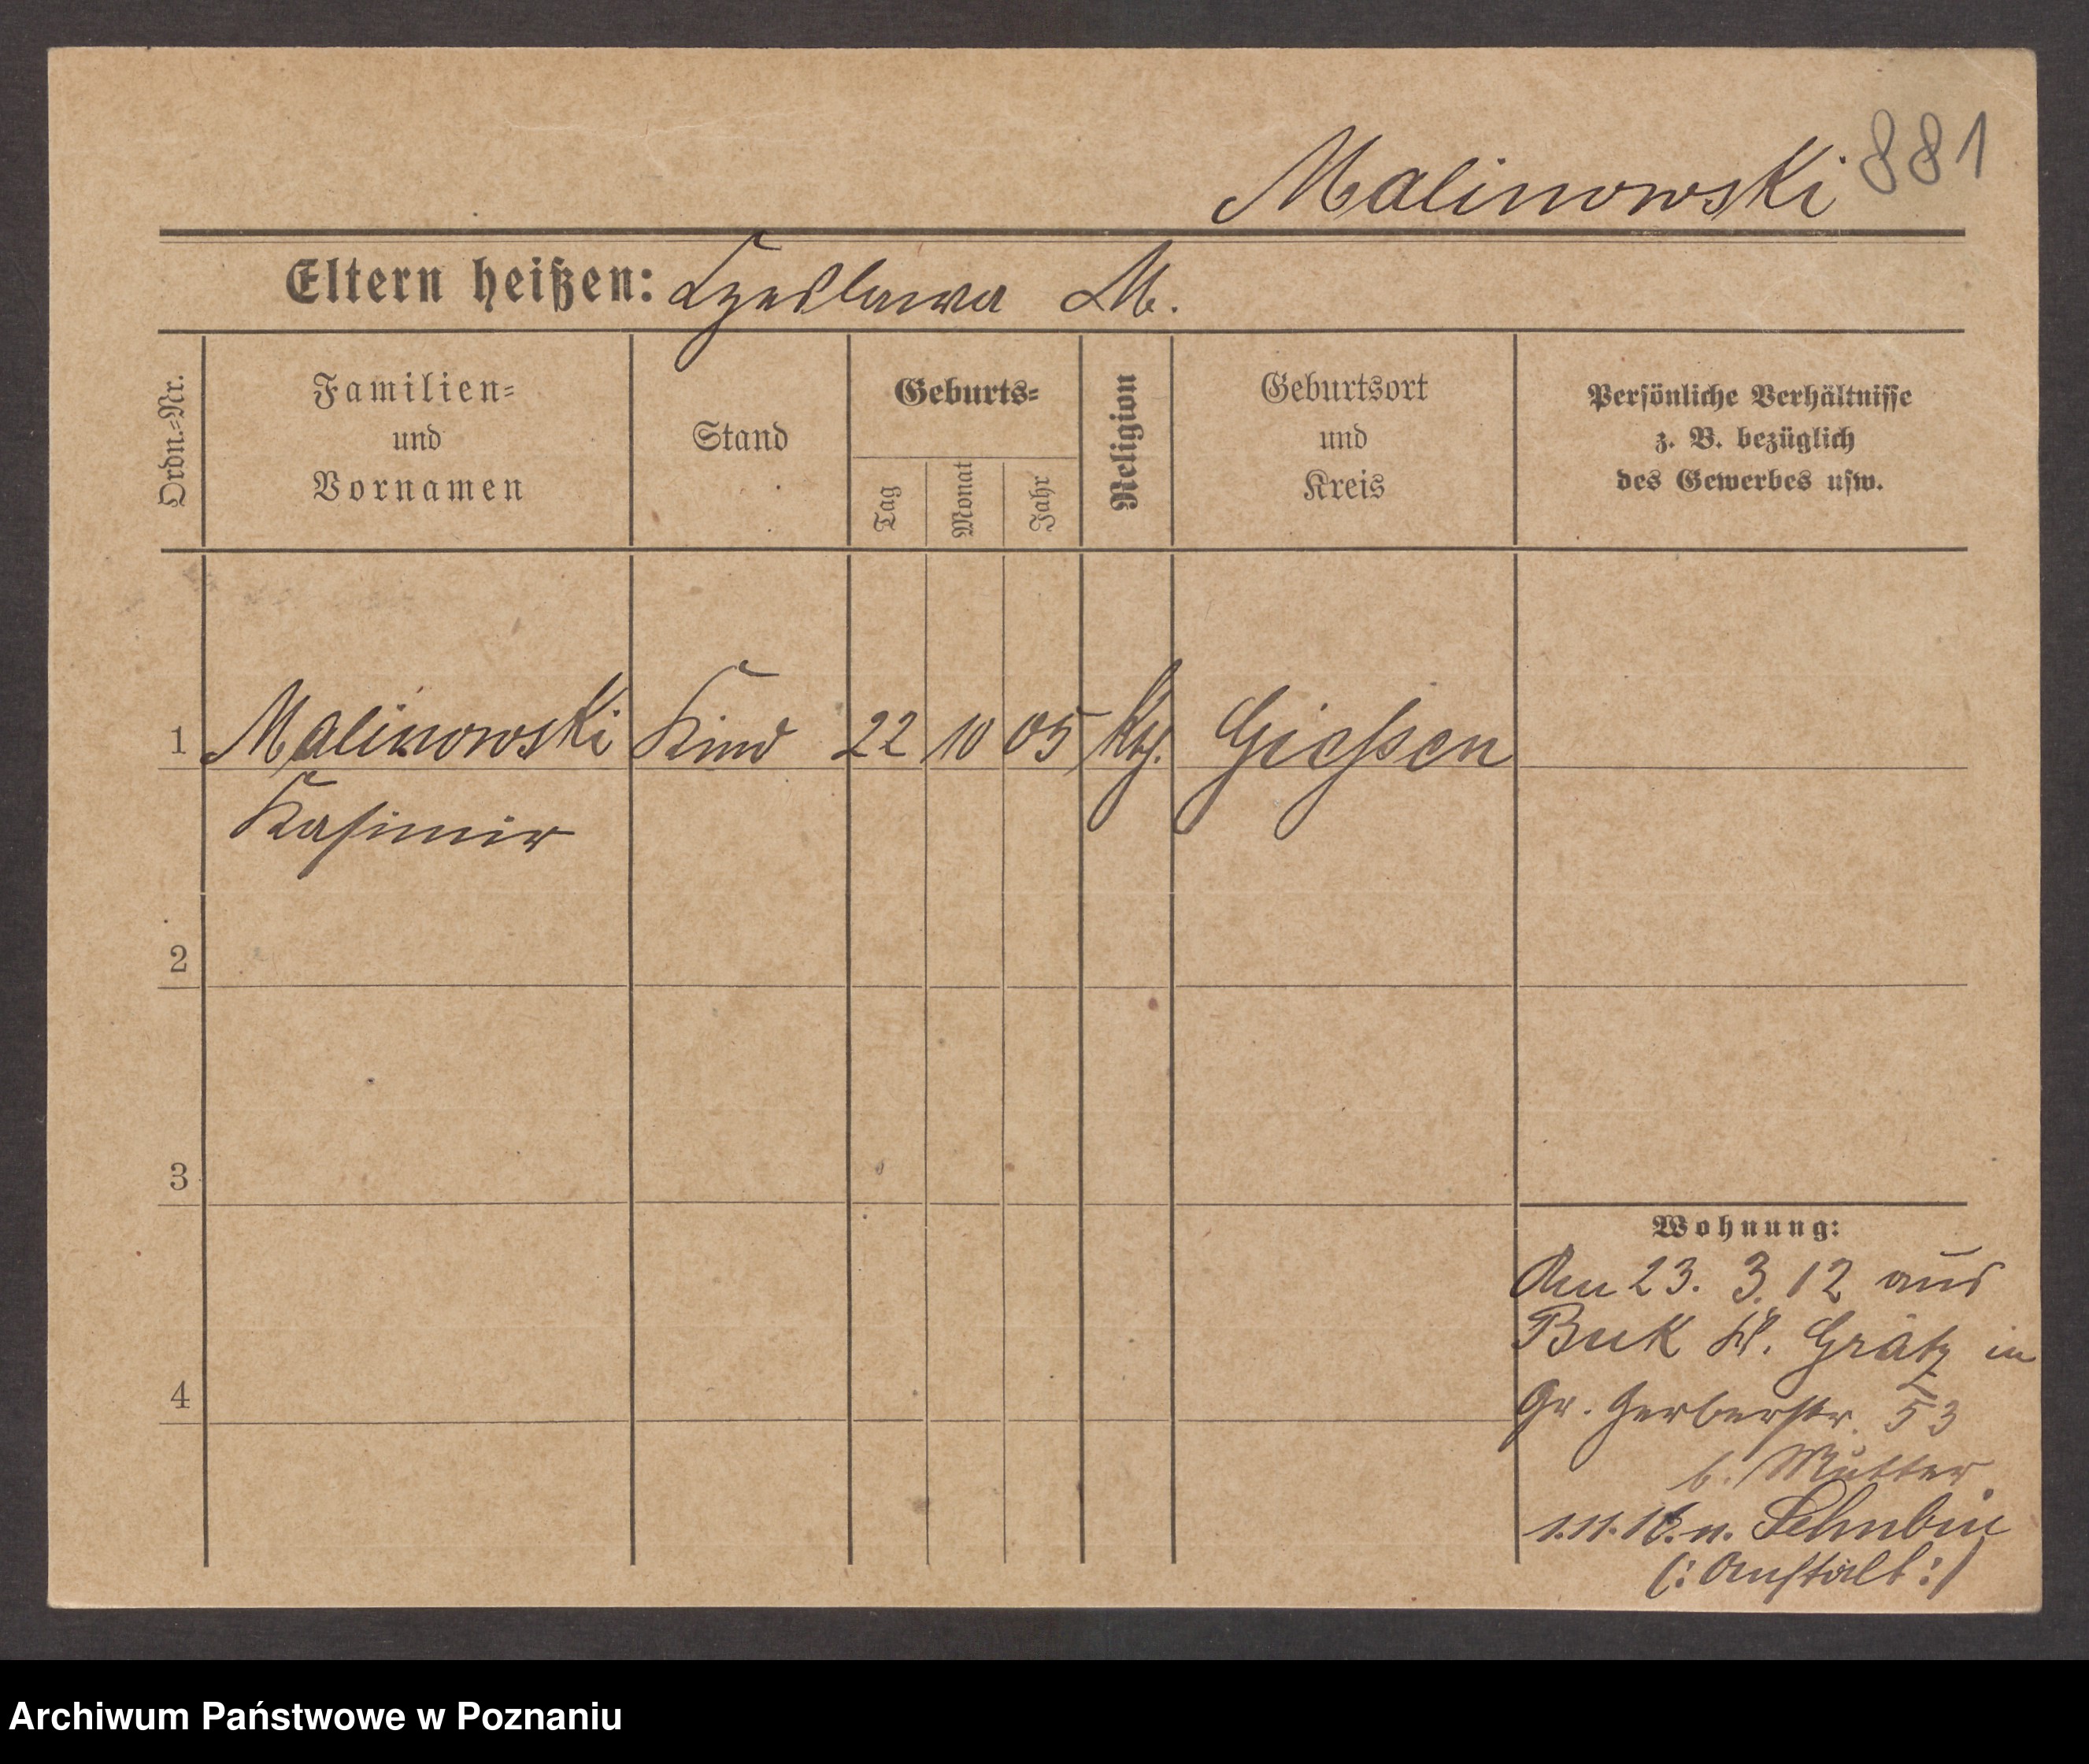 Malinowski 881
Eltern heißen: Czeslawa M.
Ordn.=Nr.
Familien=
und
Vornamen
Stand
Geburts=
Tag
Monat
Jahr
Religion
Geburtsort
und
Kreis
Persönliche Verhältnisse
z. B. bezüglich
des Gewerbes usw.
1 Malinowski Kind 22 10 05 kth. Gießen
Kasimir
2
3
4
Wohnung:
Am 23. 3. 12 aus
Buk Kr. Grätz in
Gr. Gerberstr. 53
b. Mutter
1.11.16. n. Schubin
(: Anstalt :)
Archiwum Państwowe w Poznaniu